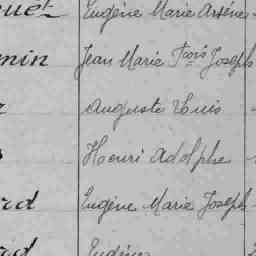 Eugène Marie Arsène
min Jean Marie Frois Joseph
Auguste Louis
Henri Adolphe
rd Eugène Marie Joseph
rd Eugène